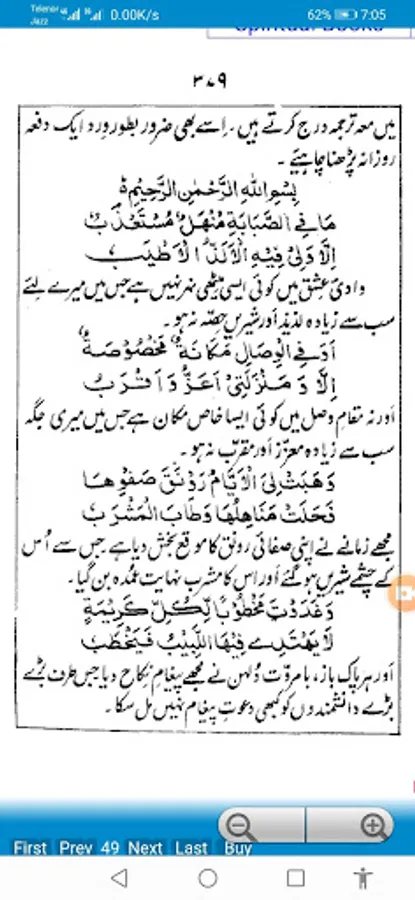 Telenor
Jazz
4G
0.00K/s
62%
7:05
Spiritual Books
۳۷۹
میں معہ ترجمہ درج کرتے ہیں۔ اِسے بھی ضرور بطور ورد ایک دفعہ
روزانہ پڑھنا چاہیئے۔
بِسْمِ اللهِ الرَّحْمٰنِ الرَّحِيْمِ
مَا فِي الصَّبَابَةِ مَنْهَلٌ مُسْتَعْذَبٌ
اِلَّا وَلِيْ فِيْهِ الْاَلَذُّ الْاَطْيَبُ
وادئ عشق میں کوئی ایسی میٹھی نہر نہیں ہے جس میں میرے لئے
سب سے زیادہ لذیذ اور شیریں حصّہ نہ ہو۔
اَوْ فِي الْوِصَالِ مَكَانَةٌ مَخْصُوْصَةٌ
اِلَّا وَ مَنْزِلَتِيْ اَعَزُّ وَ اَقْرَبُ
اَور نہ مقامِ وصل میں کوئی ایسا خاص مکان ہے جس میں میری جگہ
سب سے زیادہ معزّز اَور مقرّب نہ ہو۔
وَهَبَتْ لِيَ الْاَيَّامُ رَوْنَقَ صَفْوِهَا
فَحَلَتْ مَنَاهِلُهَا وَطَابَ الْمَشْرَبُ
مجھے زمانے نے اپنی صفائی رونق کا موقع بخش دیا ہے جس سے اُس
کے چشمے شیریں ہو گئے اَور اس کا مشرب نہایت عمُدہ بن گیا۔
وَغَدَوْتُ مَخْطُوْبًا لِكُلِّ كَرِيْمَةٍ
لَا يَهْتَدِيْ فِيْهَا اللَّبِيْبُ فَيَخْطُبُ
اَور ہر پاک باز، با مروّت دُلہن نے مجھے پیغامِ نکاح دیا جس طرف بڑے
بڑے دانشمندوں کو کبھی دعوتِ پیغام نہیں مل سکا۔
First Prev 49 Next Last Buy